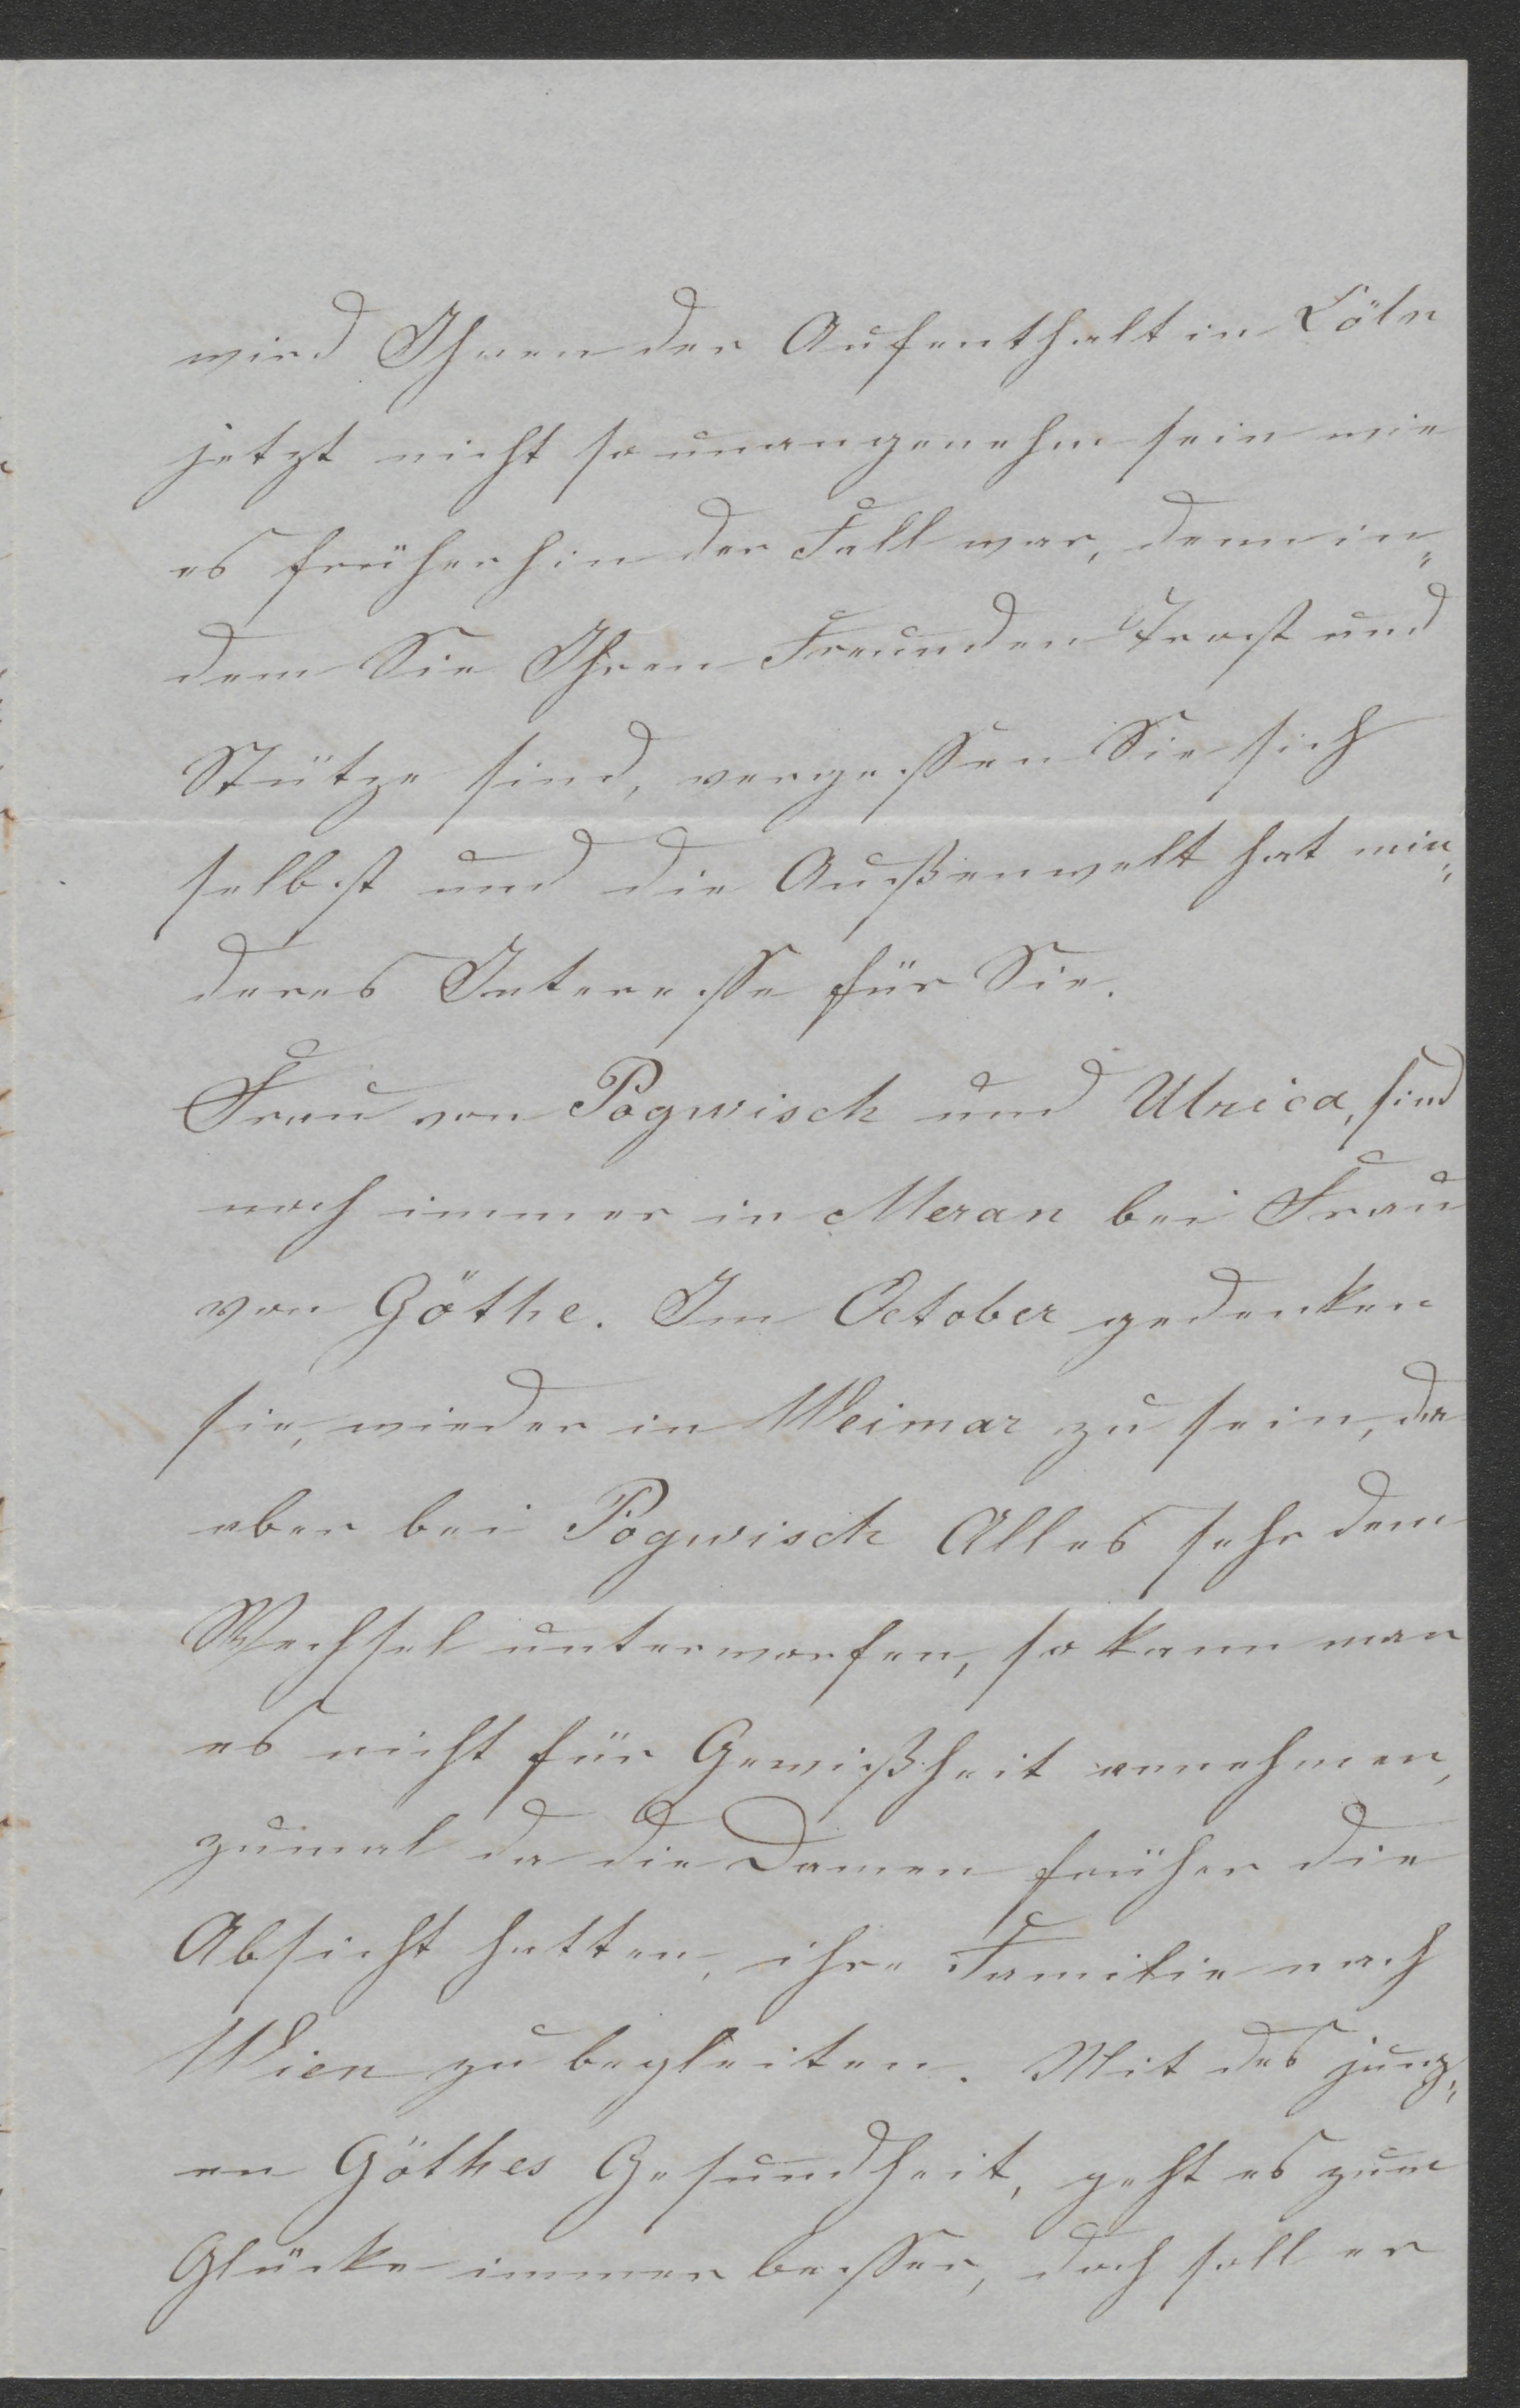 wird Ihnen der Aufenthalt in Cöln
jetzt nicht so unangenehm sein wie
es früherhin der Fall war, denn in„
dem Sie Ihren Freunden Trost und
Stütze sind, vergessen Sie sich
selbst und die Außenwelt hat min„
deres Interesse für Sie.
Frau von Pogwisch und Ulrica, sind
noch immer in Meran bei Frau
von Göthe. Im October gedenken
sie, wieder in Weimar zu sein, da
aber bei Pogwisch Alles sehr dem
Wechsel unterworfen, so kann man
es nicht für Gewißheit annehmen,
zumal da die Damen früher die
Absicht hatten, ihre Familie nach
Wien zu begleiten. Mit des jung„
en Göthes Gesundheit, geht es zum
Glücke immer besser, doch soll er